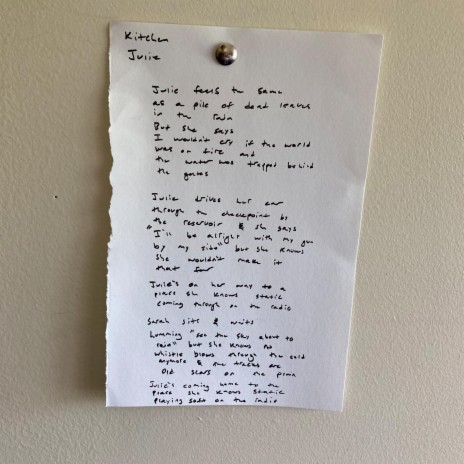 Kitchen
Julie
Julie feels the same
as a pile of dead leaves
in the rain
But she says
I wouldn't cry if the world
was on fire and
the water was trapped behind
the gates
Julie drives her car
through the checkpoint by
the reservoir & she says
"I'll be alright with my gun
by my side" but she knows
she wouldn't make it
that far
Julie's on her way to a
place she knows static
coming through on the radio
Sarah sits & waits
humming "see the sky about to
rain" but she knows no
whistle blows through the cold
anymore & the tracks are
old scars on the plain
Julie's coming home to the
place she knows static
playing soft on the radio